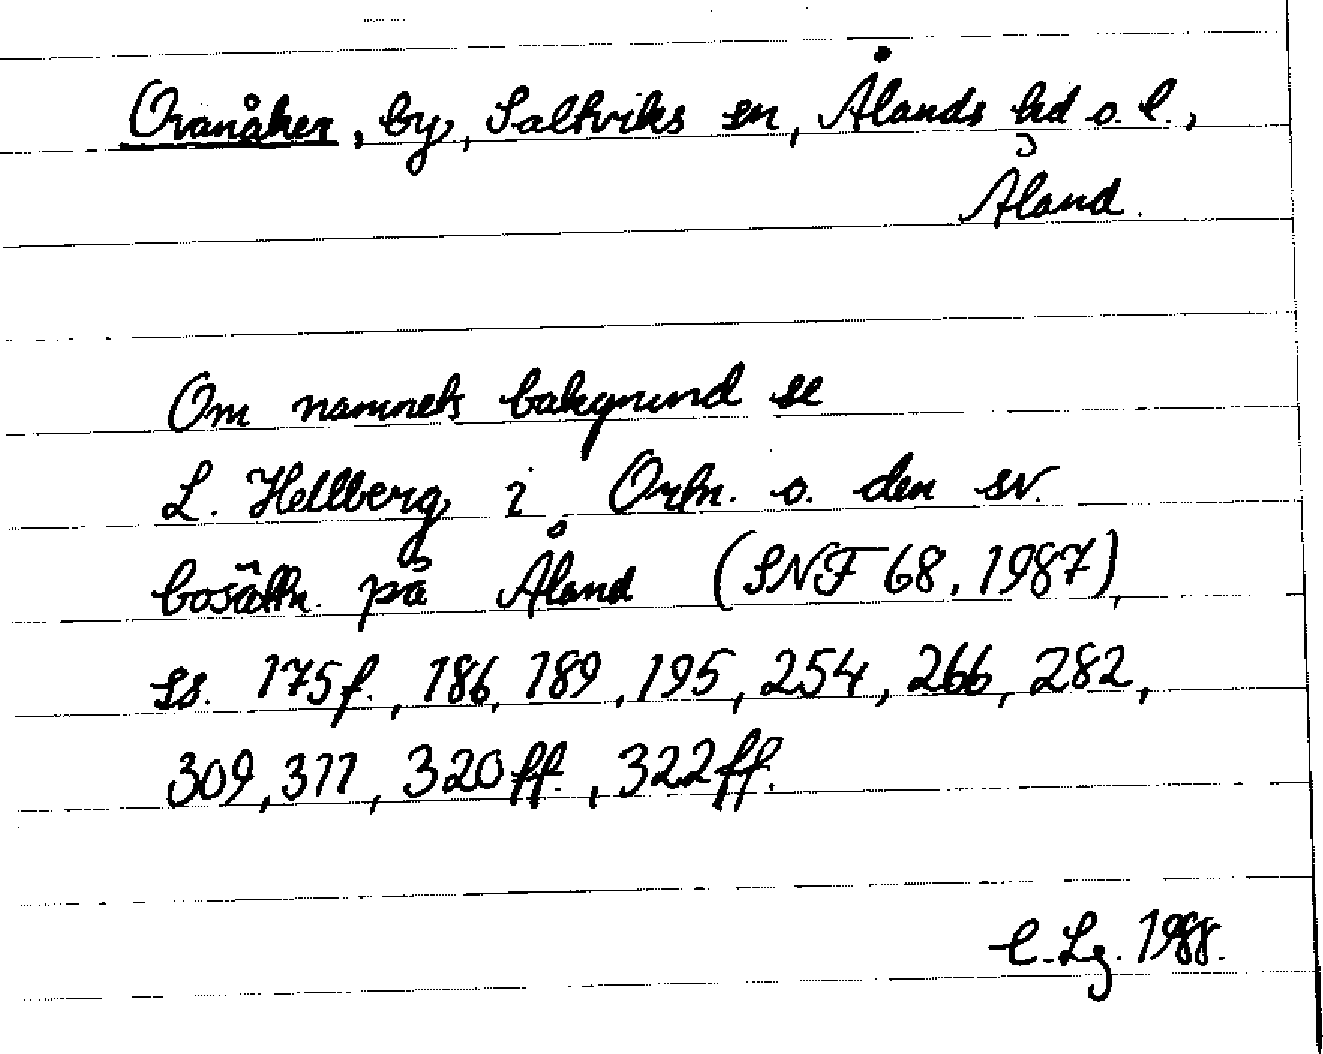 Ovanåker, by, Saltviks sn, Ålands hd o. l.,
Åland.
Om namnets bakgrund se
L. Hellberg i Ortn. o. den sv.
bosättn. på Åland (SNF 68, 1987),
ss. 175f., 186, 189, 195, 254, 266, 282,
309, 311, 320ff., 322ff.
C. Lg. 1988.